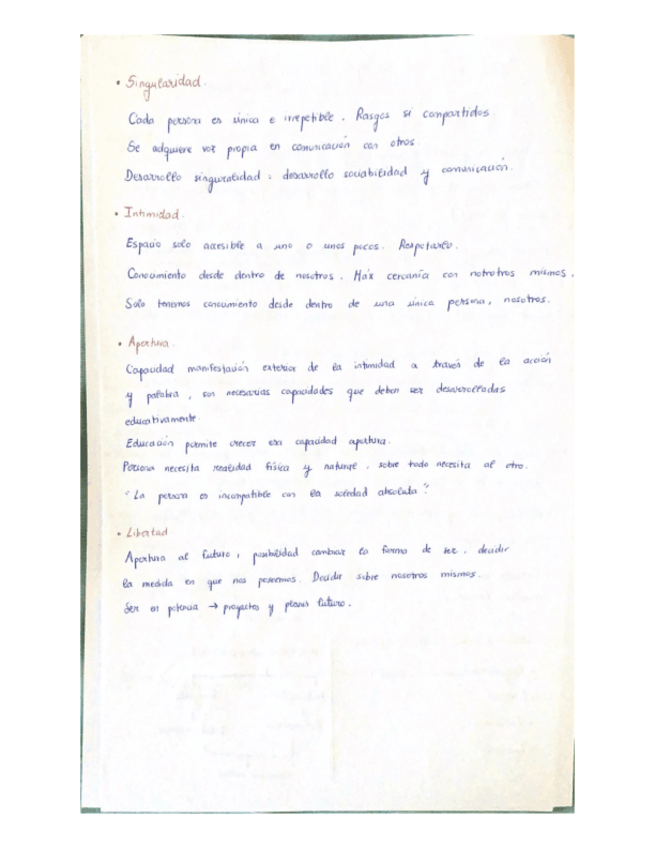 • Singularidad.
Cada persona es única e irrepetible. Rasgos sí compartidos.
Se adquiere voz propia en comunicación con otros.
Desarrollo singuralidad = desarrollo sociabilidad y comunicación.
• Intimidad.
Espacio solo accesible a uno o unos pocos. Respetarlo.
Conocimiento desde dentro de nosotros. Máx cercanía con notrotros mismos.
Solo tenemos conocimiento desde dentro de una única persona, nosotros.
• Apertura.
Capacidad manifestación exterior de la intimidad a través de la acción
y palabra, son necesarias capacidades que deben ser desarrolladas
educativamente.
Educación permite crecer esa capacidad apertura.
Persona necesita realidad física y natural, sobre todo necesita al otro.
"La persona es incompatible con la soledad absoluta".
• Libertad
Apertura al futuro, posibilidad cambiar la forma de ser, decidir
la medida en que nos poseemos. Decidir sobre nosotros mismos.
Ser en potencia → proyectos y planes futuro.